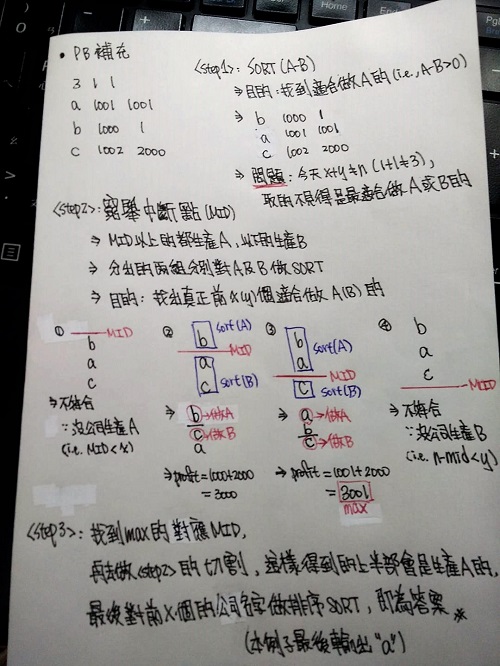 • PB 補充
3 1 1
a 1001 1001
b 1000 1
c 1002 2000
<step1>: SORT (A-B)
⇒ 目的:找到適合做A的 (i.e., A-B>0)
⇒ b 1000 1
a 1001 1001
c 1002 2000
⇒ 問題:今天 x+y≠n (1+1≠3),
取的不見得是最適合做A或B的
<step2>: 窮舉中斷點 (MID)
⇒ MID以上的都生產A,以下的生產B
⇒ 分出的兩組分別對A及B做SORT
⇒ 目的:找出真正前x(y)個適合做A(B)的
①
MID
b
a
c
⇒ 不符合
∵沒公司生產A
(i.e. MID < x)
②
b sort(A)
MID
a
c sort(B)
⇒ b→做A
c→做B
a
⇒ profit = 1000+2000
= 3000
③
b
a sort(A)
MID
c sort(B)
⇒ a→做A
b
c→做B
⇒ profit = 1001+2000
= 3001
max
④
b
a
c
MID
⇒ 不符合
∵沒公司生產B
(i.e. n-mid < y)
<step3>: 找到max的對應MID,
再去做<step2>的切割,這樣得到的上半部會是生產A的,
最後對前X個的公司名字做排序SORT,即為答案※
(本例子最後輸出"a")